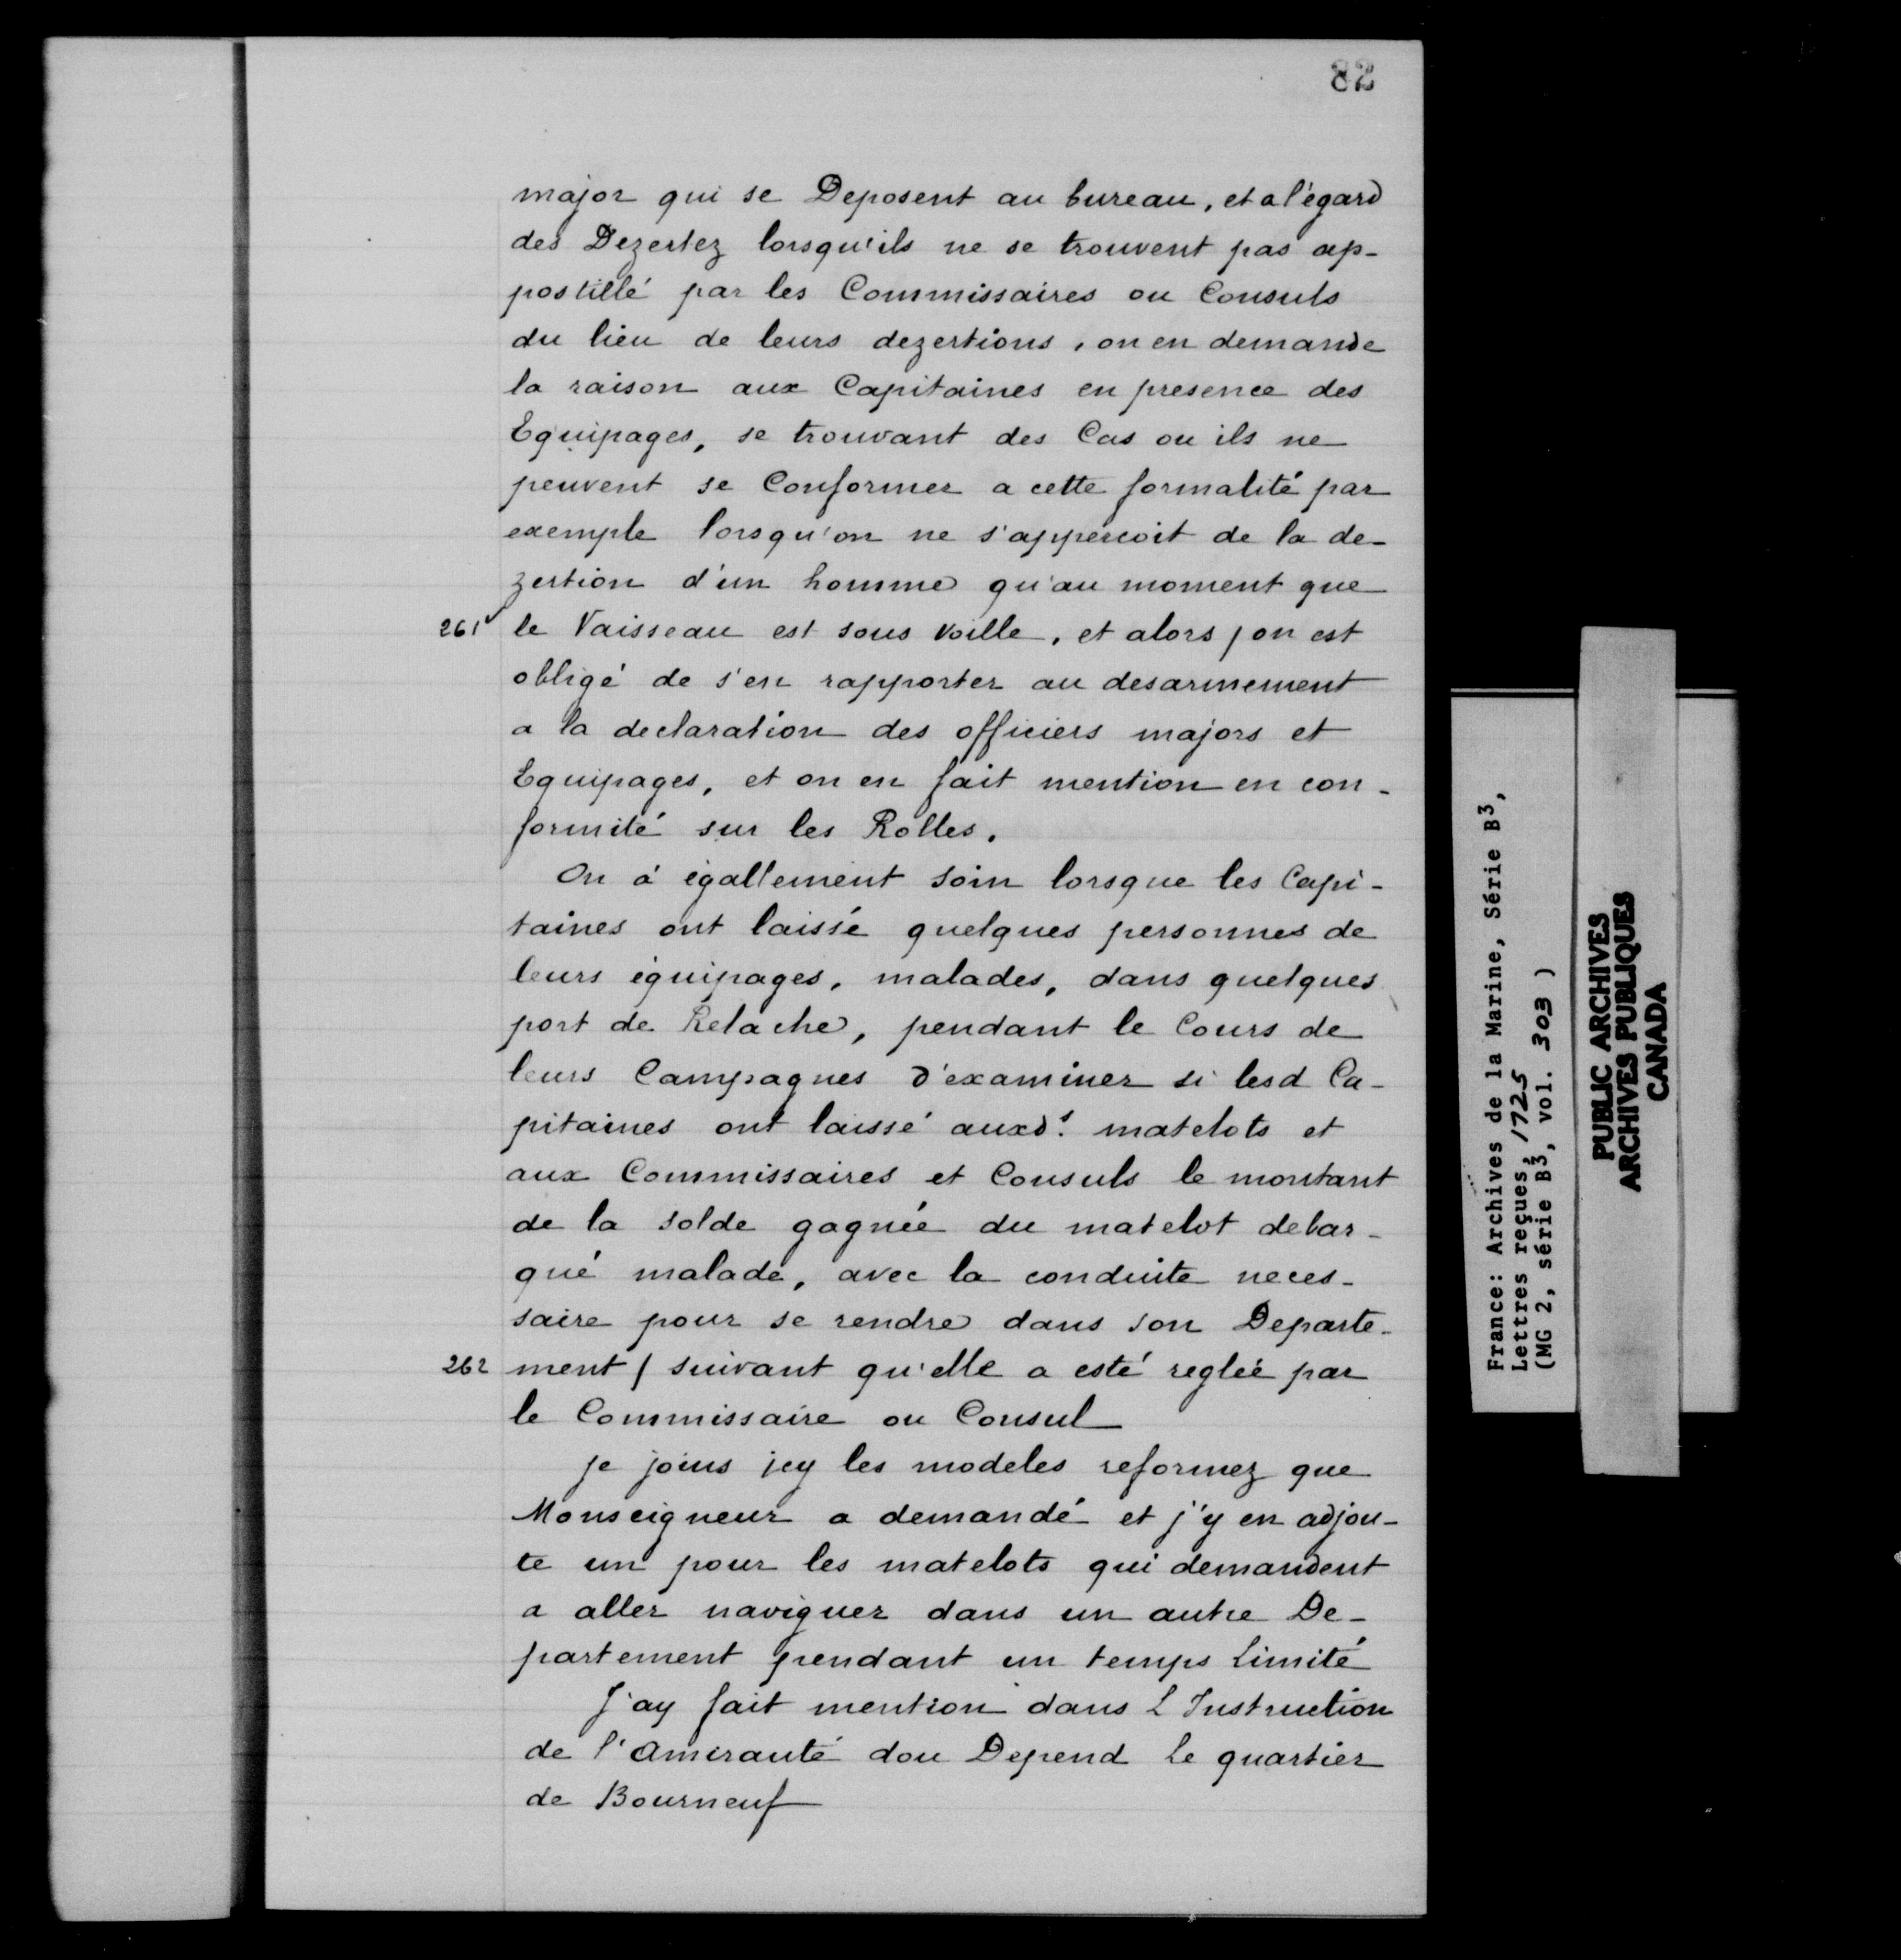 82
major qui se Deposent au bureau, et a l'égard
des Dezertez lorsqu'ils ne se trouvent pas ap-
postillé par les Commissaires ou Consuls
du lieu de leurs dezertions, on en demande
la raison aux Capitaines en presence des
Equipages, se trouvant des Cas ou ils ne
peuvent se Conformer a cette formalité par
exemple lorsqu'on ne s'appercoit de la de-
zertion d'un homme qu'au moment que
261v le Vaisseau est sous voille, et alors / on est
obligé de s'en rapporter au desarmement
a la declaration des officiers majors et
Equipages, et on en fait mention en con-
formité sur les Rolles.
On á égallement soin lorsque les Capi-
taines ont laissé quelques personnes de
leurs équipages, malades, dans quelques
port de Relache, pendant le Cours de
leurs Campagnes d'examiner si lesd Ca-
pitaines ont laissé auxds. matelots et
aux Commissaires et Consuls le montant
de la solde gagnée du matelot debar-
qué malade, avec la conduite neces-
saire pour se rendre dans son Departe-
262 ment / suivant qu'elle a esté reglée par
le Commissaire ou Consul
je joins jcy les modeles reformez que
Monseigneur a demandé et j'y en adjou-
te un pour les matelots qui demandent
a aller naviguer dans un autre De-
partement pendant un temps limité
J'ay fait mention dans L Instruction
de l'Amirauté dou Depend le quartier
de Bourneuf
France: Archives de la Marine, Série B3,
Lettres reçues, 1725
(MG 2, série B3, vol. 303 )
PUBLIC ARCHIVES
ARCHIVES PUBLIQUES
CANADA